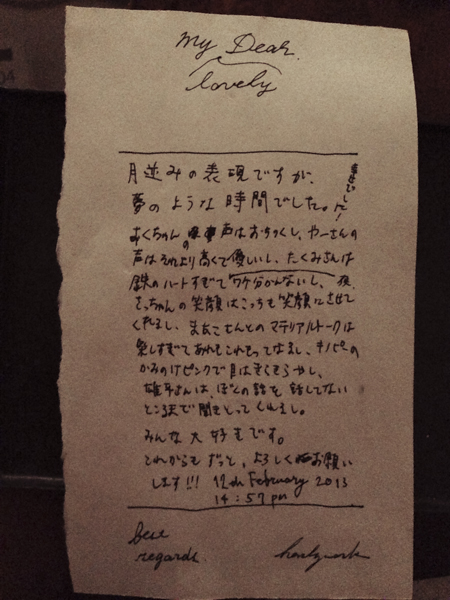 My Dear.
lovely
月並みの表現ですが、
夢のような時間でした。
幸せでした!
むくちゃんの声はおちつくし、やーさんの
声はそれより高くて優しいし、たくみさんは
鉄のハートすぎてワケ分かんないし、
さっちゃんの笑顔はこっちも笑顔にさせて
くれるし、まあこさんとのマテリアルトークは
楽しすぎてあれもこれもってなるし、キノピーの
かみのけピンクで目はきらきらやし、
さんは、ぼくの話を話してない
ところまで聞きとってくれるし。
みんな大好きです。
これからもずっと、よろしくお願い
します!!! 12th February 2013
14:57 pm
best
regards.